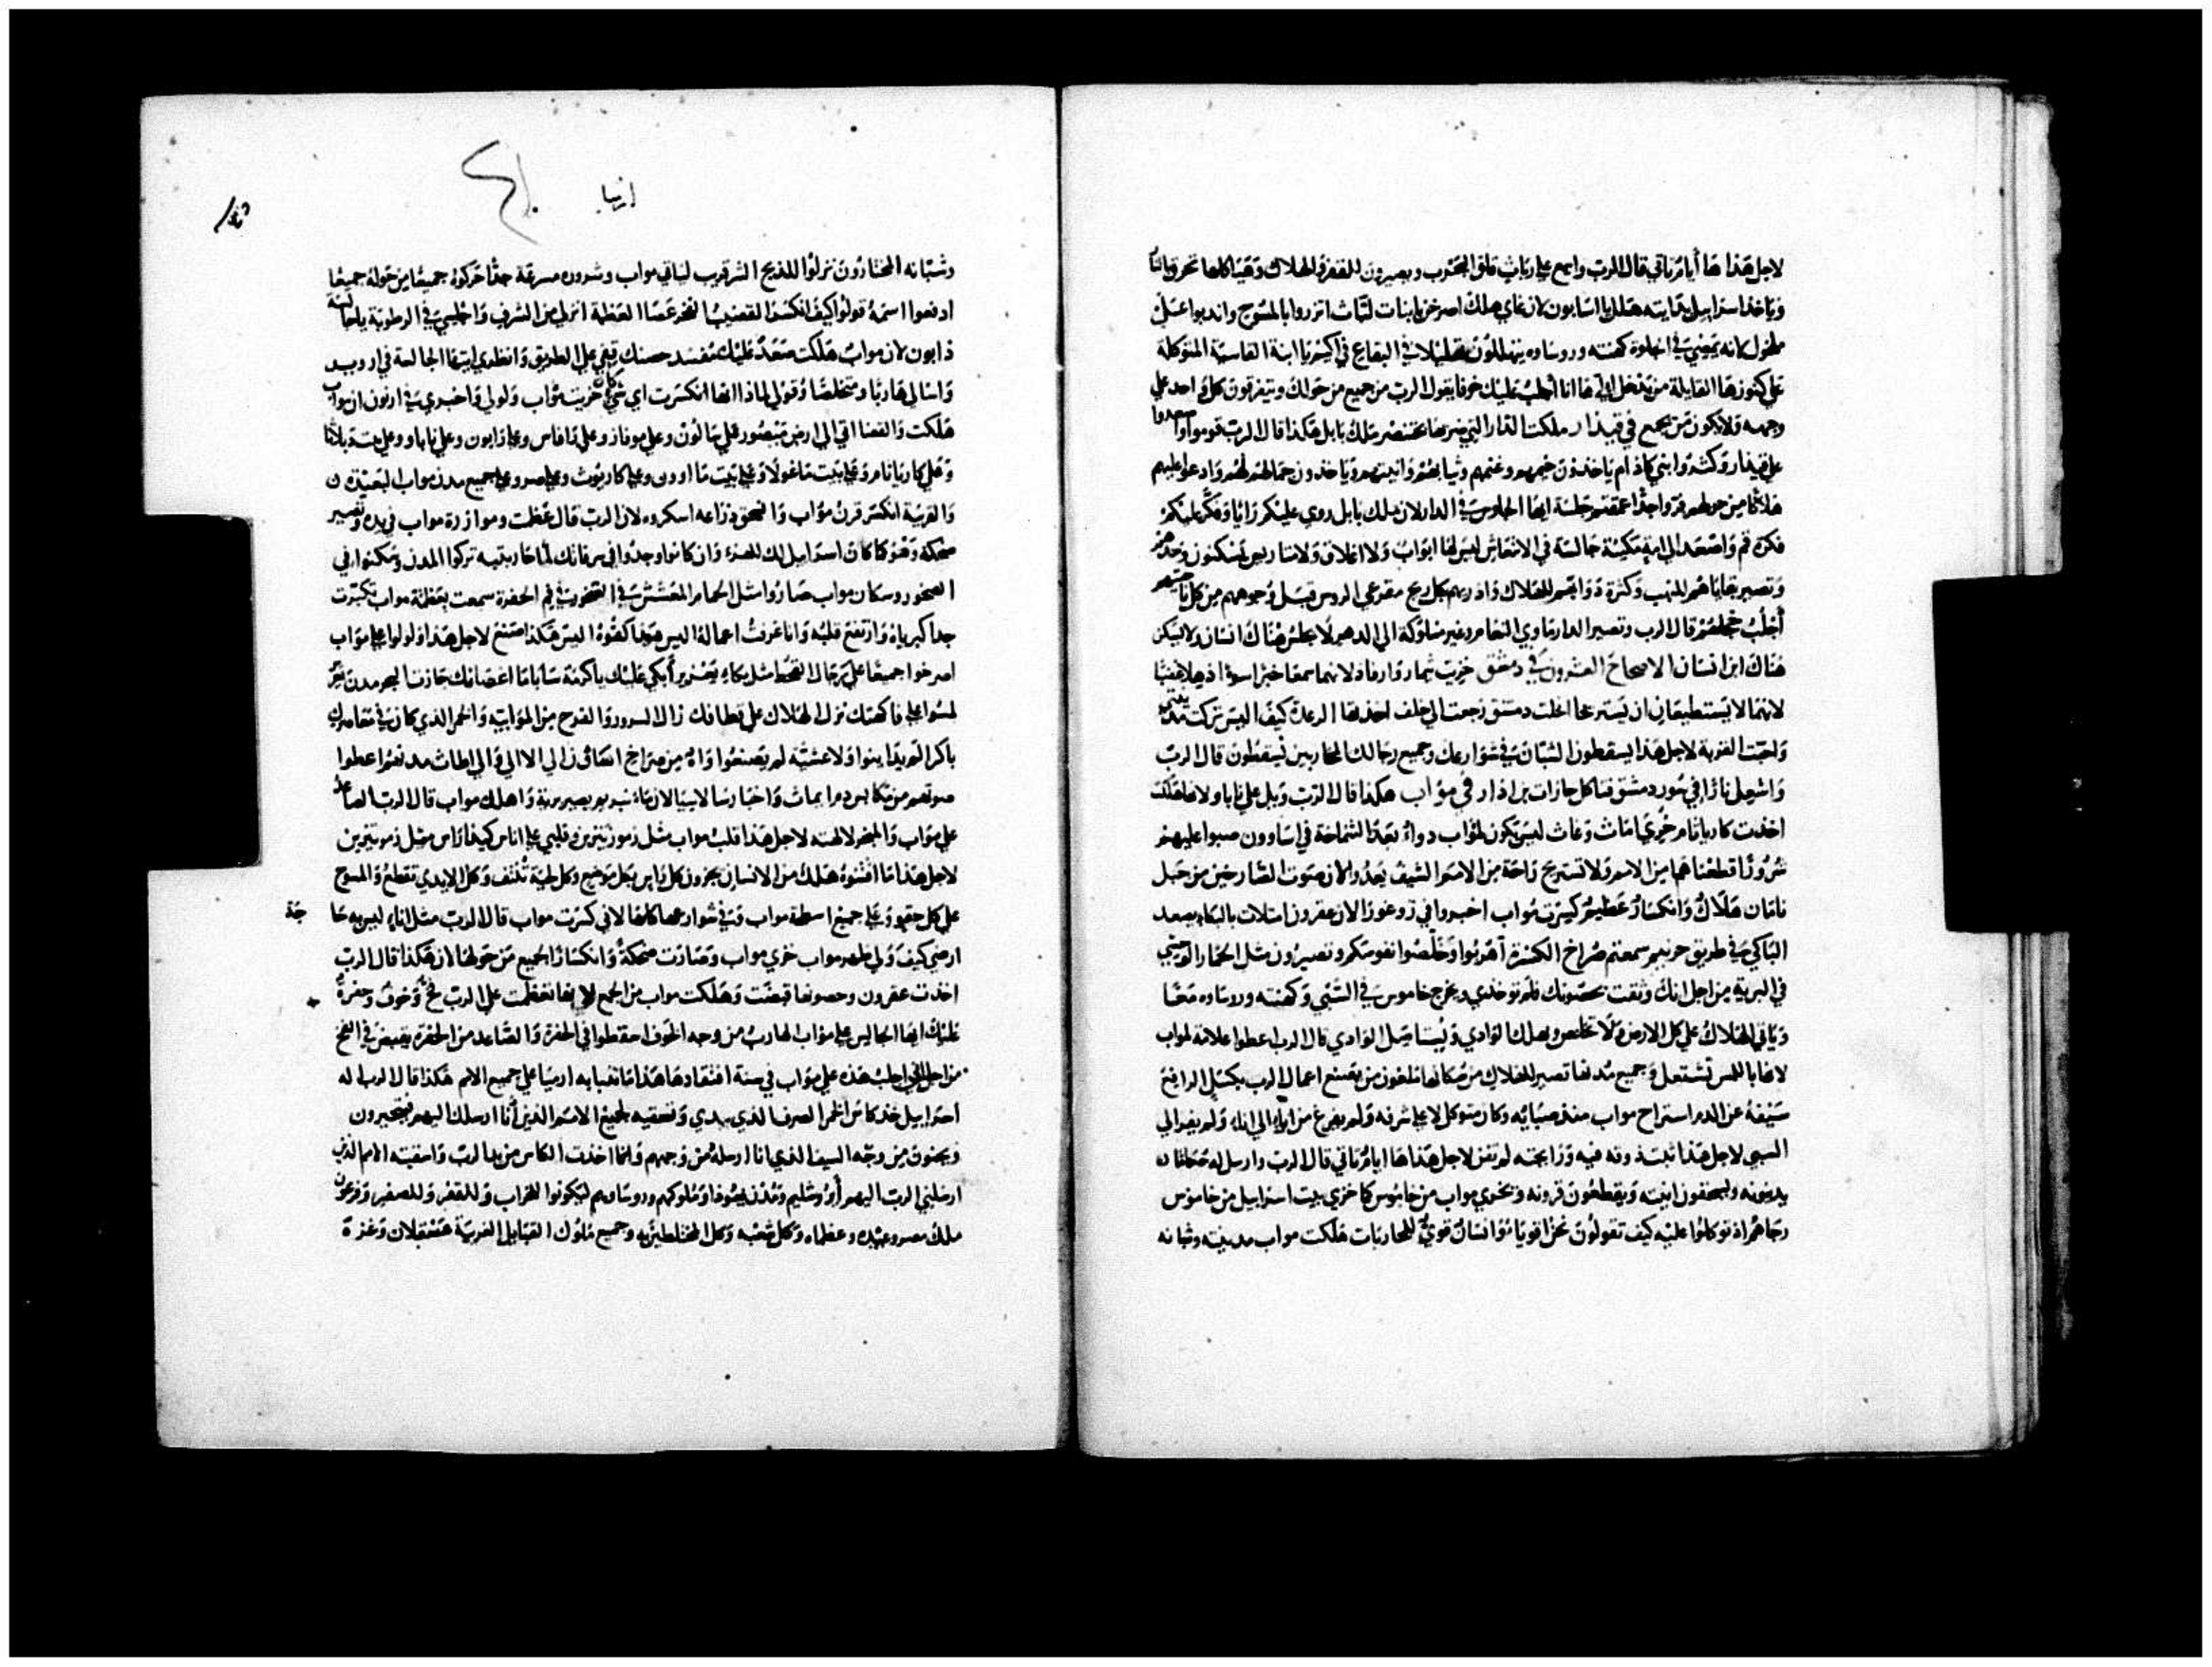 لاجل هذا ها أيام تاتي قال الرب واسمع علي رباث قلق الحروب ويصيرون للقفر والهلاك وهياكلها تحرق بالنار
وياخذ اسراييل بدايته هلل يا اسابون لان غاي هلك اصرخن يا بنات لباث اتزروا بالمسوح واندبوا علي
ملخول لانه يمضي في الجلوة كهنته وروساوه يتهللون تهليلات في البقاع في اكيمر يا ابنة القاسية المتوكلة
علي كنوزها القايلة من يدخل الي ها انا أجلب عليك خوفا يقول الرب من جميع من حولك ويتفرقون كل واحد علي
وجهه ولا يكون من يجمع في قيدار ملكت الدار التي ضربها بختنصر ملك بابل هكذا قال الرب قوموا واصعدوا
علي قيدار وابني كاذام ياخذون خيمهم وغنمهم وثيابهم وانيتهم وياخذون جمالهم لهم وادعوا عليهم
هلاكا من حولهم فروا جدا عمقتم جلسة ايها الجلوس في الدار لان ملك بابل روي عليكم رايا وفكر عليكم
فكرة قم واصعد الي امة مكينة جالسة في الانتعاش ليس لها ابواب ولا اغلاق ولا متاريس يسكنون وحدهم
وتصير بقاياهم للنهب وكثرة دوابهم للهلاك واذريهم بكل ريح مقزعي الروس قبل وجوههم من كل ناحيتهم
أجلب هزيمتهم قال الرب وتصير الدار ماوي النعام وغير مسلوكة الي الدهر لا يجلس هناك انسان ولا يسكن
هناك ابن انسان الاصحاح العشرون في دمشق خزيت ثمار وارفاد لانهما سمعا خبرا سوءا
لانهما لا يستطيعان ان يستريحا انحلت دمشق رجعت الي خلف اخذتها الرعدة كيف اليس تركت مدينتي
واحبت القرية لاجل هذا يسقطون الشبان في شوارعك وجميع رجالك المحاربين يسقطون قال الرب
واشعل نارا في سور دمشق فتاكل حازات بن اذار في مواب هكذا قال الرب ويل علي نابا ولانها هلكت
اخذت كارياثام خزي اماث وغاث ليس يكون لمواب دواء بعد الشماخة في اساوون صبوا عليهم
شرورا قطعناهما من الامم ولا تستريح راحة من الامم السيف يعدوا لان صوت الصارخين من جبل
نامان هلاك وانكسار عظيم كسرت مواب اخبروا في زوغورا لان عقرون امتلات بالبكاء يصعد
الباكي في طريق حونيم سمعتم صراخ الكسرة أهربوا وخلصوا نفوسكم وتصيرون مثل الحمار الوحشي
في البرية من اجل انك وثقت بحصونك فانت توخذي ويخرج خاموس في السبي وكهنته وروساوه معا
وياتي الهلاك علي كل الارض ولا تخلص ويهلك الوادي ويستاصل الوادي قال الرب اعطوا علامة لمواب
لانها باللمس تشتعل وجميع مدنها تصير للهلاك من مكانها ملعون من يصنع اعمال الرب بكسل الرافع
سيفه عن الدم استراح مواب منذ صبائه وكان متوكلا علي شرفه ولم يفرغ من اناء الي اناء ولم يصر الي
السبي لاجل هذا ثبت ذوقه فيه ورائحته لم تفن لاجل هذا ها ايام تاتي قال الرب وارسل له
يديرونه ويسحقون انيته ويقطعون قرونه ويخزي مواب من خاموس كما خزي بيت اسراييل من خاموس
رجاهم اذ توكلوا عليه كيف تقولون نحن اقوياء وانسان قوي للمحاربات هلكت مواب مدينته وشبانه
ارميا
وشبانه المختارون نزلوا للذبح الشر قريب لياتي مواب وشروره مسرعة جدا حركوه جميعا من حوله جميعا
ادفعوا اسمه قولوا كيف انكسر القضيب الفخر عصا العظمة انزلي من الشرف واجلسي في الرطوبة يا جالسة
ذابون لان مواب هلكت صعد عليك مفسد حصنك قفي علي الطريق وانظري ايتها الجالسة في اروير
واسالي هاربا ومتخلصا وقولي لماذا انها انكسرت اي شي كان خزيت مواب ولولي واخبري في ارنون ان مواب
هلكت والقضا اتي الي ارض مبصور علي حالون وعلي موفاز وعلي دافاس وعلي ذابون وعلي نابا
وعلي كارياثام وعلي بيت ماغول وعلي بيت ماوون وعلي كاريوث وعلي بصرو وعلي جميع مدن مواب البعيدة
والقريبة انكسر قرن مواب وانسحق ذراعه اسكروه لان الرب قال عظمت وموازرة مواب في يده وتصير
ضحكة وهو كما كان اسراييل لك للهزء وان كانوا وجدوا في سرقاتك لما حاربتيه تركوا المدن وسكنوا في
الصخور وسكان مواب صاروا مثل الحمام المعششين في الصخور في فم الحفرة سمعت بعظمة مواب تكبرت
جدا كبرياه وارتفع قلبه وانا عرفت اعماله اليس هو هذا كفوه اليس هكذا صنع لاجل هذا ولولوا علي مواب
اصرخوا جميعا علي رجال القحط مثل بكاء يعزير أبكي عليك يا كرمة سابا اغصانك جازت البحر مدن
لمسوا علي فاكهتك نزل الهلاك علي قطافك زال السرور والفرح من الموابية والخمر الذي كان في معاصرك
باكرا لم يديروا ولا عشية لم يصنعوا واه من صراخ
صوتهم من
علي مواب والبخور لالهته لاجل هذا قلب مواب مثل زمور تنزمر وقلبي علي اناس كيذاراس مثل زمور تنزمر
لاجل هذا ما اقتنوه هلك من الانسان يجزون كل راس بكل موضع وكل لحية تنتف وكل الايدي تقطع والمسوح
علي كل حقو وعلي جميع اسطحة مواب وفي شوارعها كلها لاني كسرت مواب قال الرب مثل اناء ليس به حاجة
ارضي كيف ولي ظهره مواب خزي مواب وصارت ضحكة وانكسارا لجميع من حولها لان هكذا قال الرب
اخذت عقرون وحصونها قبضت وهلكت مواب من الجمع لانها تعظمت علي الرب فخ وخوف وحفرة
عليك ايها الجالس علي مواب الهارب من وجه الخوف سقطوا في الحفرة والصاعد من الحفرة يقبض في الفخ
من اجل اني اجلب هذه علي مواب في سنة افتقادها هذا ما تنبا به ارميا علي جميع الامم هكذا قال الرب اله
اسراييل خذ كاس الخمر الصرف الذي بيدي وتسقيه لجميع الامم الذين أنا ارسلك اليهم فيتحيرون
ويجنون من وجه السيف الذي انا ارسله من وجههم وانما اخذت الكاس من يد الرب واسقيته الامم الذين
ارسلني الرب اليهم أورشليم ومدن يهوذا وملوكهم وروساوهم ليكونوا للخراب وللقفر وللصفير وفرعون
ملك مصر وعبيده وعظماه وكل شعبه وكل المختلطين به وجميع ملوك القبايل الغريبة عسقلان وغزة